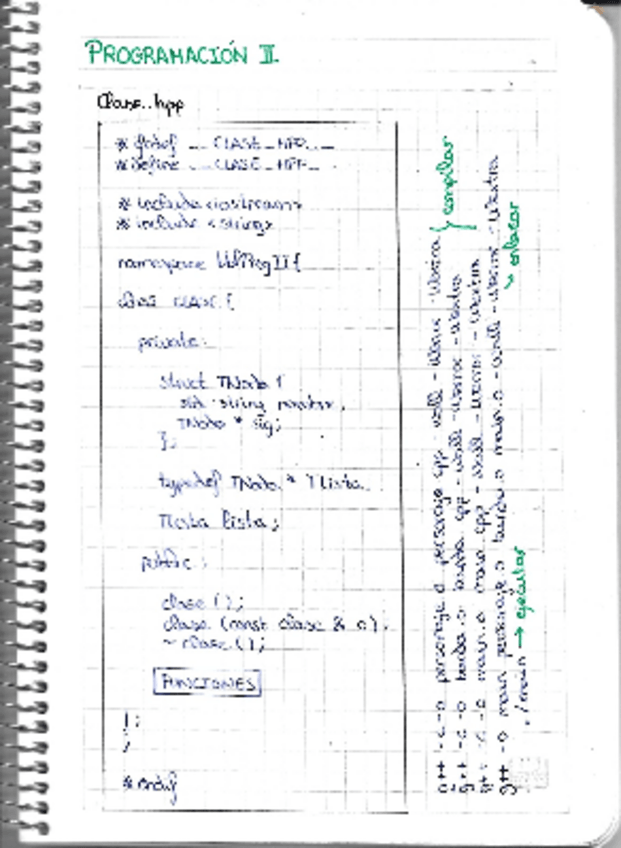 PROGRAMACIÓN II.
Clase.hpp
# ifndef __CLASE_HPP__
# define __CLASE_HPP__
# include <iostream>
# include <string>
namespace UdProg II {
class CLASE {
private:
struct TNodo {
std::string nombre;
TNodo * sig;
};
typedef TNodo * TLista
TLista lista;
public:
clase ();
clase (const clase & o).
~ clase ();
FUNCIONES
};
}
# endif
g++ -c -o personaje.o personaje.cpp -Wall -Werror -Wextra
g++ -c -o banda.o banda.cpp -Wall -Werror -Wextra
g++ -c -o main.o main.cpp -Wall -Werror -Wextra
g++ -o main personaje.o banda.o main.o -Wall -Werror -Wextra
./main → ejecutar
} compilar
→ enlazar